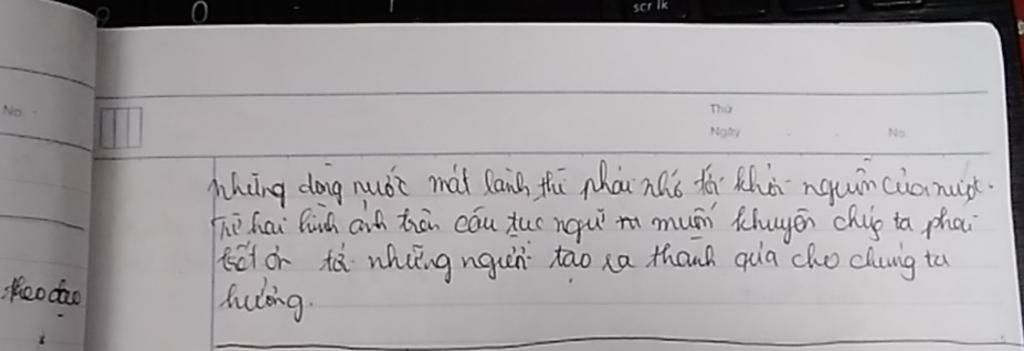 scr lk
No.
Thứ
Ngày No.
những dòng nước mát lành thì phải nhớ tới khởi nguồn của nước.
Từ hai hình ảnh trên câu tục ngữ muốn khuyên chúng ta phải
biết ơn tới những người tạo ra thành quả cho chúng ta
hưởng.
theo đạo